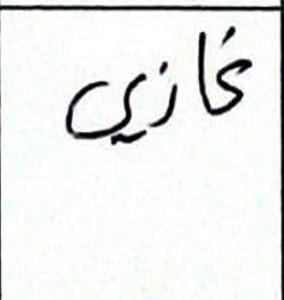 غازي